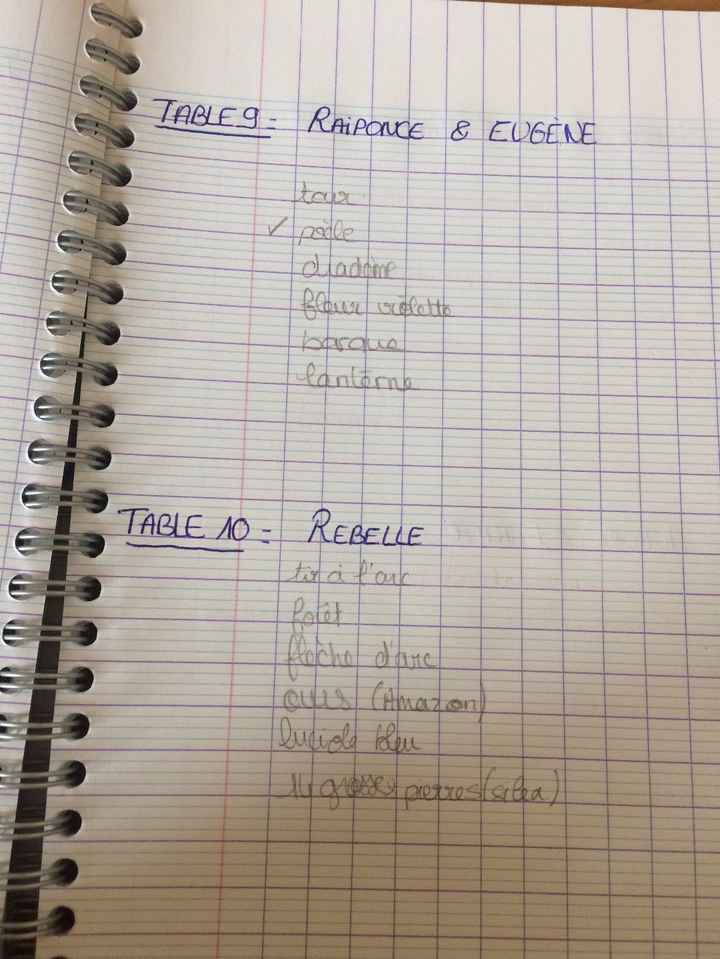 TABLE 9 = RAIPONCE & EUGÈNE
tour
✓ poêle
diadème
fleur violette
barque
lanterne
TABLE 10 = REBELLE
tir à l'arc
forêt
flèche d'arc
ours (Amazon)
luciole bleu
14 grosses pierres